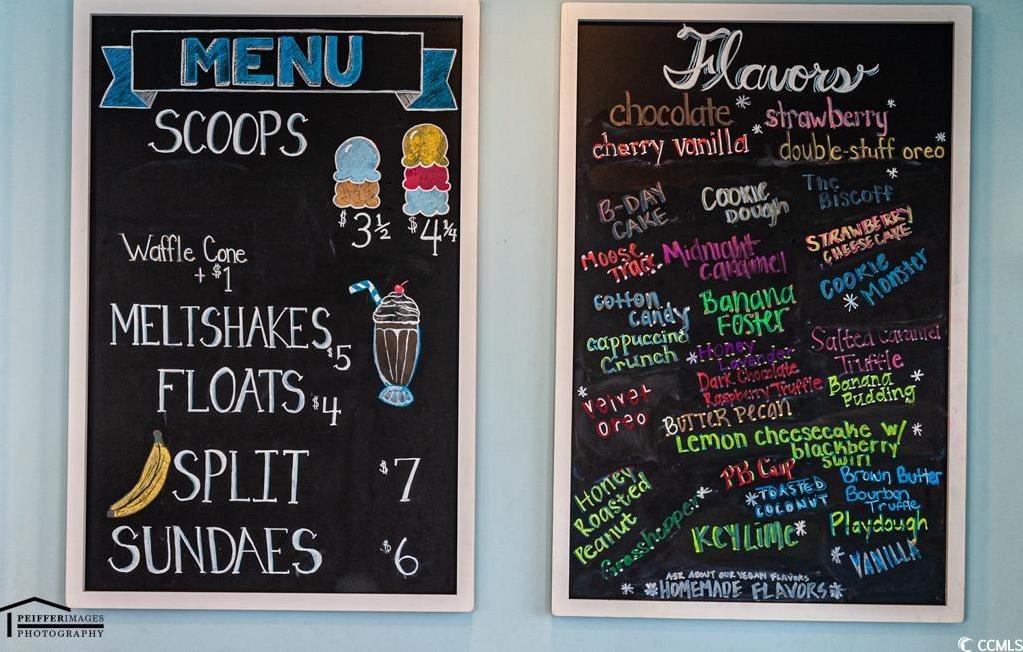 MENU
SCOOPS
$3 1/2
$4 1/4
Waffle Cone
+ $1
MELTSHAKES $5
FLOATS $4
SPLIT $7
SUNDAES $6
Flavors
chocolate* strawberry*
cherry vanilla* double-stuff oreo*
B-DAY
CAKE
COOKIE
DOUGH
The
BISCOFF*
MOOSE
TRAX
Midnight
caramel
STRAWBERRY
CHEESECAKE
COOKIE
MONSTER*
cotton
candy
Banana
FOSTER
cappuccino
Crunch
*Honey
Lavender
Salted caramel
Truffle
*velvet
oreo
Dark Chocolate
Raspberry Truffle
Banana*
Pudding
BUTTER Pecan
Lemon cheesecake w/*
blackberry
swirl
Honey
Roasted
Peanut
PB Cup
*TOASTED
COCONUT
Brown Butter
Bourbon
Truffle
Grasshopper*
KEY LIME*
Playdough
*VANILLA
ASK ABOUT OUR VEGAN FLAVORS
*HOMEMADE FLAVORS*
PEIFFERIMAGES
PHOTOGRAPHY
CCMLS